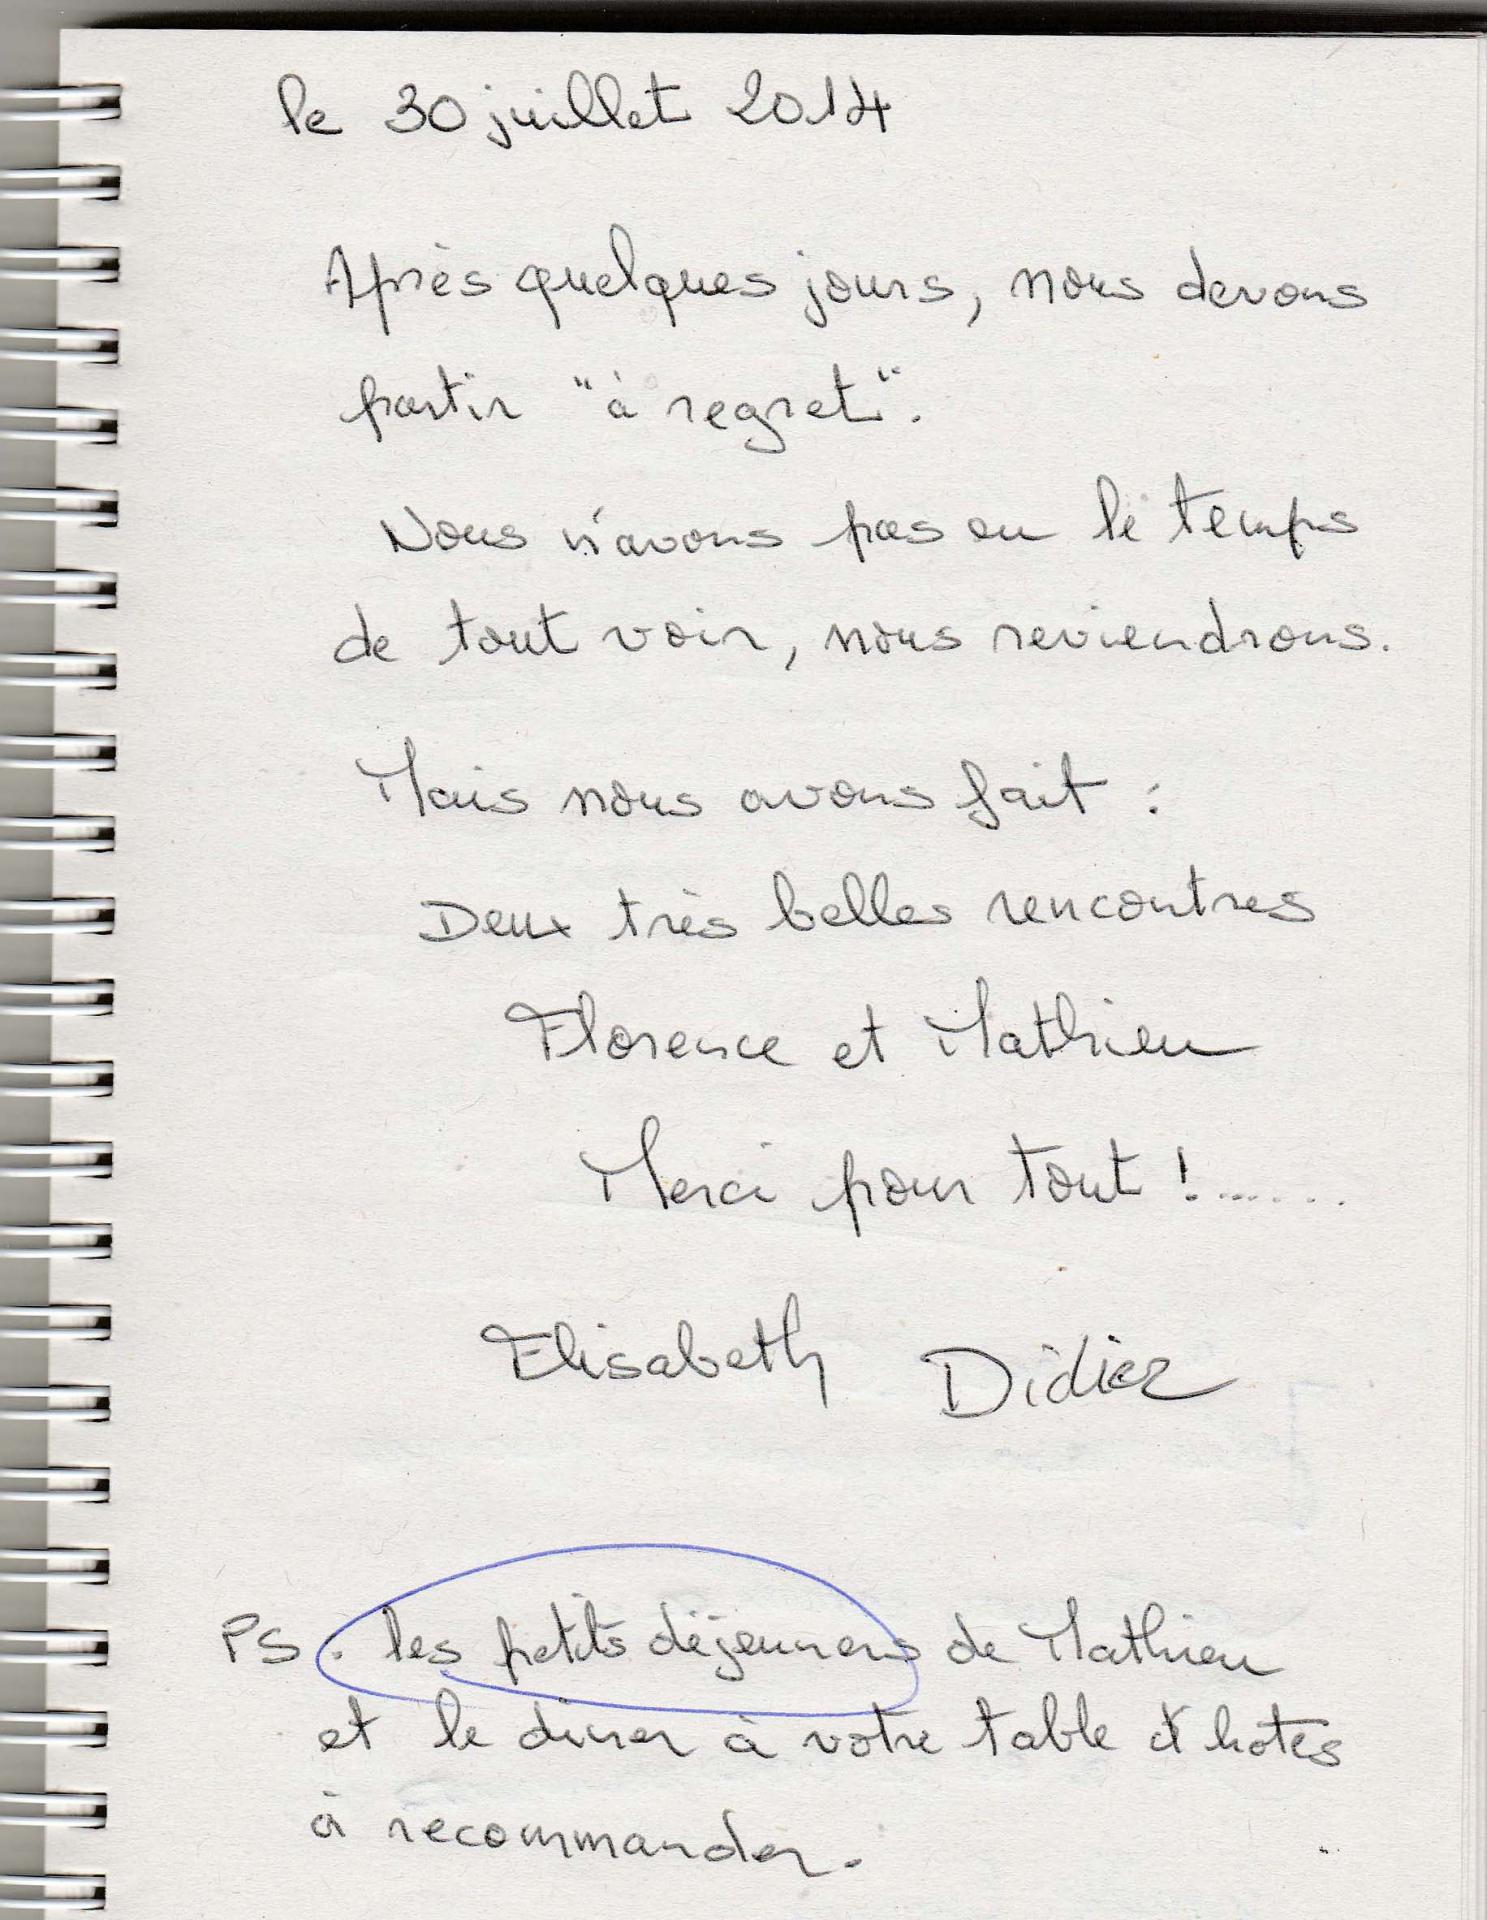 le 30 juillet 2014
Après quelques jours, nous devons
partir "à regret".
Nous n'avons pas eu le temps
de tout voir, nous reviendrons.
Mais nous avons fait :
Deux très belles rencontres
Florence et Mathieu
Merci pour tout !.......
Elisabeth Didier
PS. les petits déjeuners de Mathieu
et le diner à votre table d'hotes
à recommander.